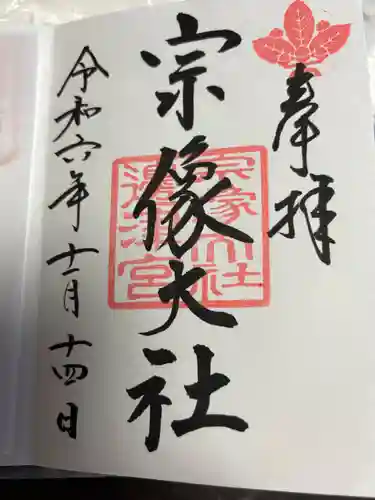 奉拝
宗像大社
宗像大社
邊津宮
令和六年十一月十四日